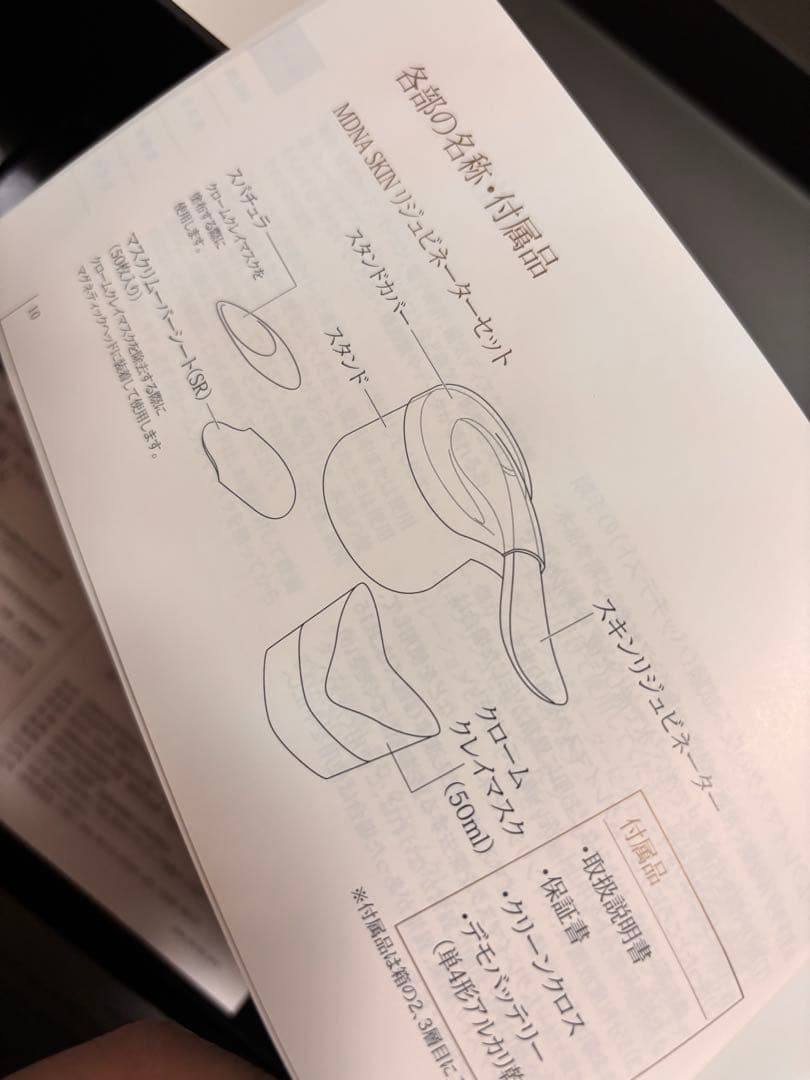 各部の名称・付属品
MDNA SKIN リジュビネーターセット
スタンドカバー
スタンド
スキンリジュビネーター
スパチュラ
クロームクレイマスクを
塗布する際に
使用します。
マスクリムーバーシート(SR)
(50枚入り)
クロームクレイマスクを除去する際に
マグネティックヘッドに装着して使用します。
クローム
クレイマスク
(50ml)
付属品
・取扱説明書
・保証書
・クリーンクロス
・デモバッテリー
(単4形アルカリ乾
※付属品は箱の2、3層目に
10